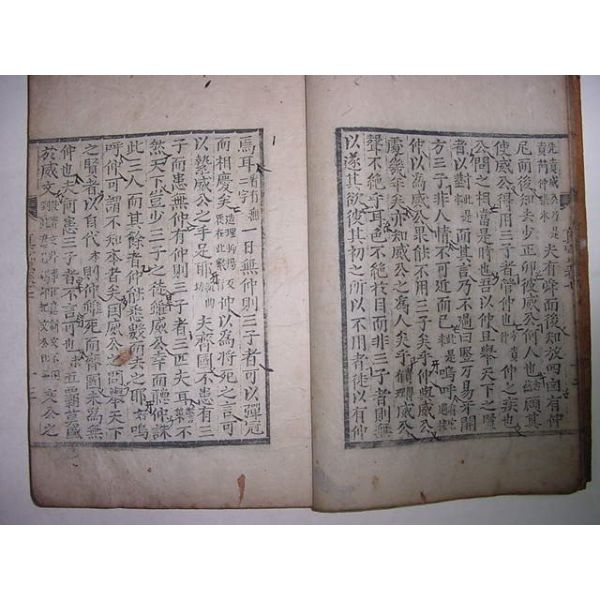 夫有舜而後知放四凶有仲
尼而後知去少正卯彼威公何人也顧其
使威公得用三子者管仲也仲之疾也
公問之相當是時也吾以仲且擧天下之賢
者以對而其言乃不過曰豎刁易牙開
方三子非人情不可近而已嗚呼
仲以爲威公果能不用三子矣乎仲與威公
處幾年矣亦知威公之爲人矣乎威公
聲不絶乎耳色不絶於目而非三子者則無
以遂其欲彼其初之所以不用者徒以有仲
焉耳一日無仲則三子者可以彈冠
而相慶矣仲以爲將死之言可
以縶威公之手足耶夫齊國不患有三
子而患無仲有仲則三子者三匹夫耳不
然天下豈少三子之徒雖威公幸而聽仲誅
此三人而其餘者仲能悉數而去之耶嗚
呼仲可謂不知本者矣因威公之問擧天下
之賢者以自代則仲雖死而齊國未爲無
仲也夫何患三子者不言可也五霸莫盛
於威文文公之